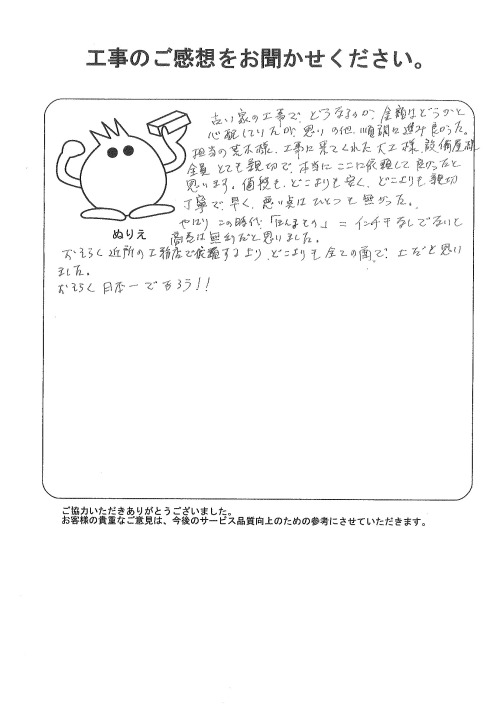 工事のご感想をお聞かせください。
古い家の工事で、どうなるのか、金額はどうかと
心配していたが、思いの他、順調に進み良かった。
担当の荒木様、工事に来てくれた大工様、設備屋様
全員とても親切で、本当にここに依頼して良かったと
思います。価格も、どこよりも安く、どこよりも親切
丁寧で、早く、悪い点はひとつも無かった。
やはりこの時代、「ほんまもの」=インチキなしでないと
商売は無理だと思いました。
おそらく近所の工務店で依頼するより、どこよりも全ての面で、上だと思い
ました。
おそらく日本一であろう!!
ぬりえ
ご協力いただきありがとうございました。
お客様の貴重なご意見は、今後のサービス品質向上のための参考にさせていただきます。